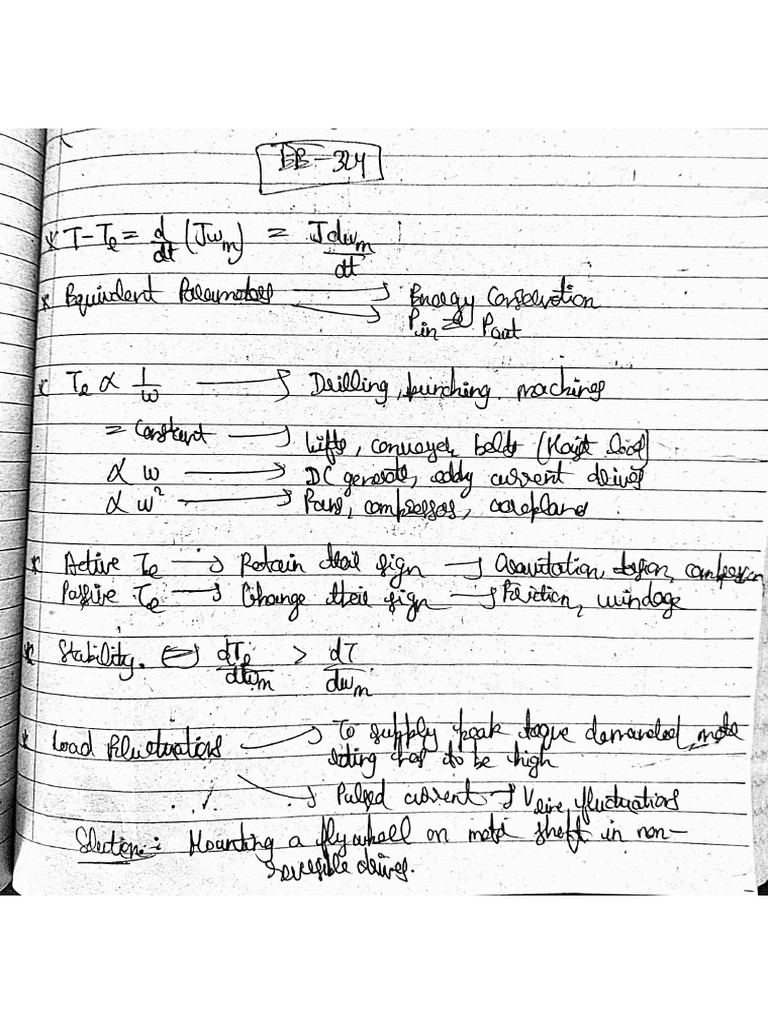 EE-324
* T-Te = d/dt (Jωm) = J dωm/dt
* Equivalent Parameters → Energy Conservation
→ Pin = Pout
* Tl ∝ 1/ω → Drilling, punching machines
= Constant → Lifts, conveyer belts (Hoist load)
∝ ω → DC generator, eddy current drives
∝ ω² → Fans, compressors, aeroplane
* Active Tl → Retain their sign → Gravitation, tension, compression
Passive Tl → Change their sign → Friction, windage
* Stability. ⇔ dTl/dωm > dT/dωm
* Load fluctuations → To supply peak torque demanded motor
rating has to be high
→ Pulsed current → Vline fluctuations
Solution:- Mounting a flywheel on motor shaft in non-
reversible drives.